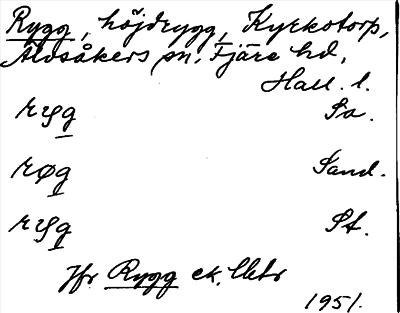 Rygg, höjdrygg, Kyrkotorp,
Älvsåkers sn. Fjäre hd,
Hall. l.
Sa.
røg Sand.
St.
Jfr Rygg ek.
1951.